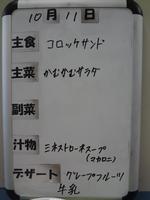 10月11日
主食 コロッケサンド
主菜 かむかむサラダ
副菜
汁物 ミネストローネスープ
(マカロニ)
デザート グレープフルーツ
牛乳